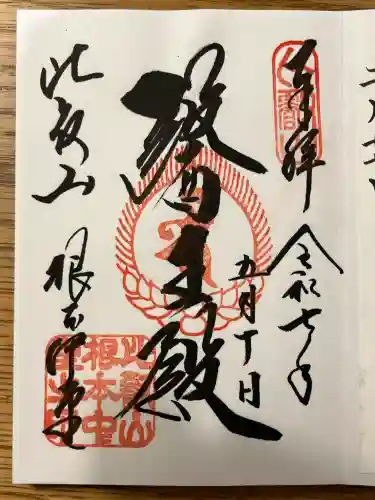 奉拝
令和七年
五月十日
醫王殿
比叡山
根本中堂
比叡山
根本中